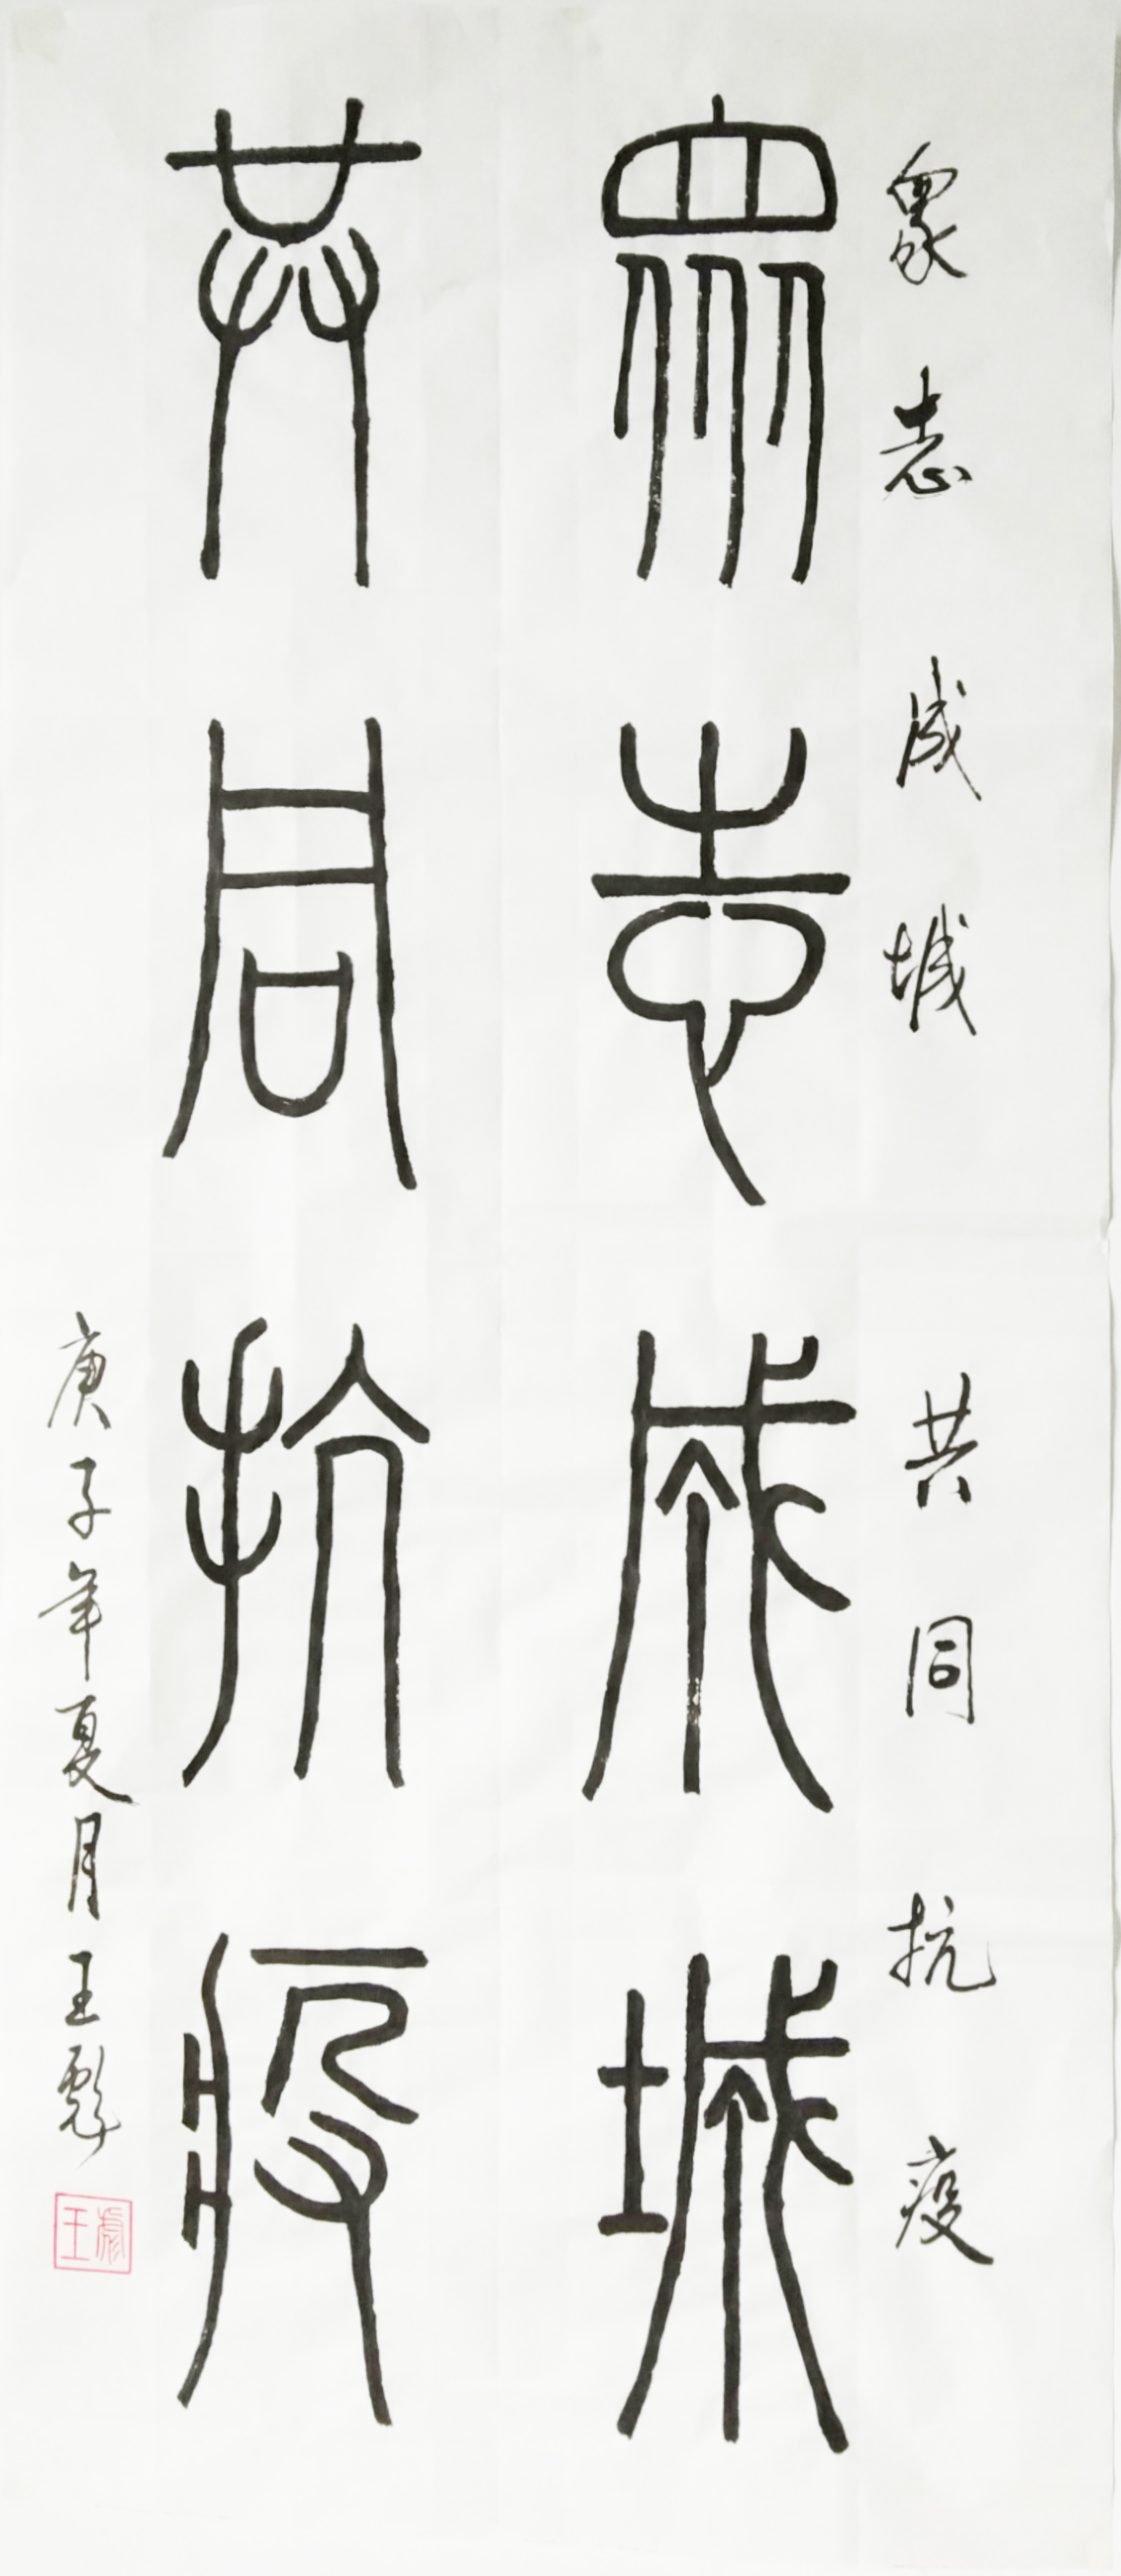 眾志成城 共同抗疫
眾志成城
共同抗疫
庚子年夏月王彪
王彪